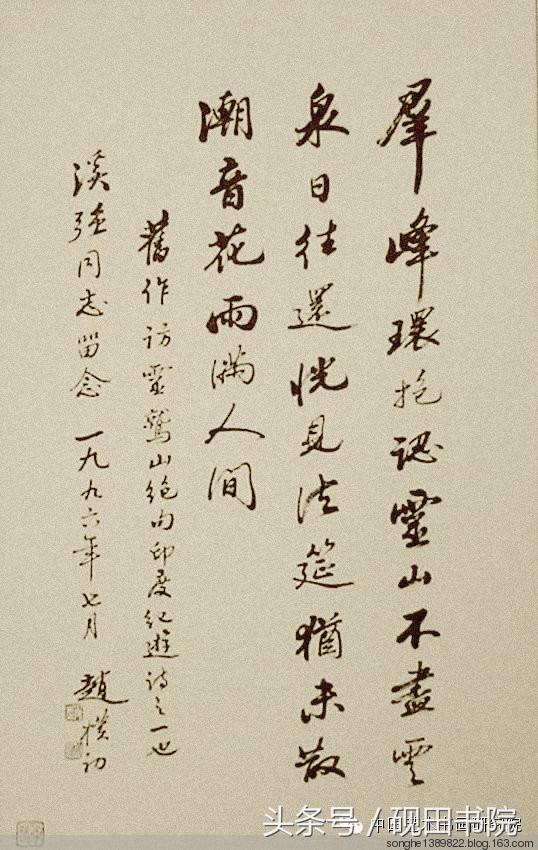 羣峰環抱認靈山不盡雲
泉日往還恍見法筵猶未散
潮音花雨滿人間
舊作訪靈鷲山絶句印度紀遊詩之一也
溪強同志留念 一九九六年七月 趙樸初
头条号／砚田书院
songhe1389822.blog.163.com